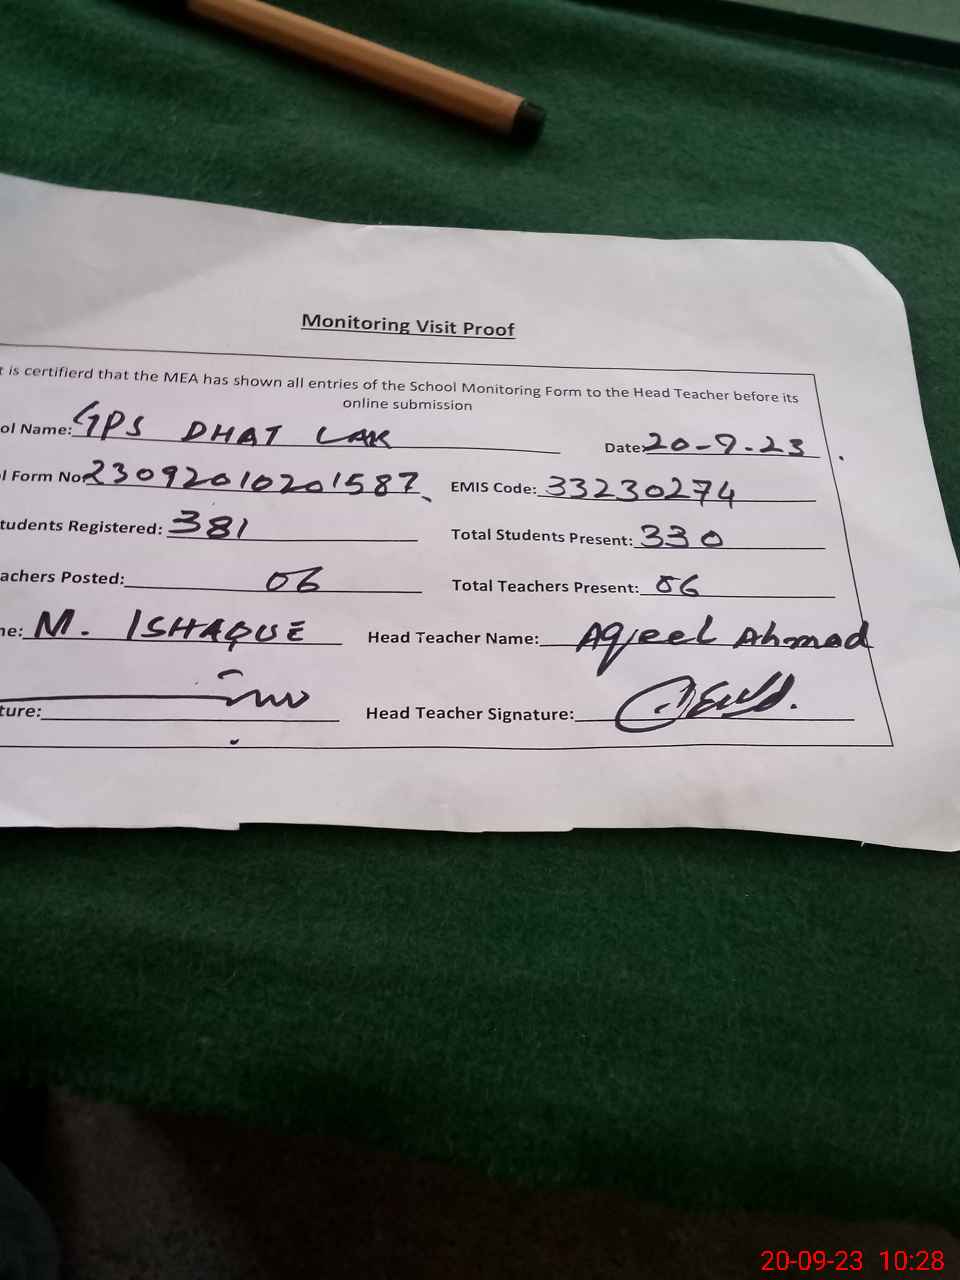 Monitoring Visit Proof
t is certifierd that the MEA has shown all entries of the School Monitoring Form to the Head Teacher before its
online submission
ol Name: GPS DHAT LAK Date: 20-9-23
l Form No: 23092010201587 EMIS Code: 33230274
tudents Registered: 381 Total Students Present: 330
achers Posted: 06 Total Teachers Present: 06
ne: M. ISHAQUE Head Teacher Name: Aqeel Ahmad
ture: Head Teacher Signature:
20-09-23 10:28